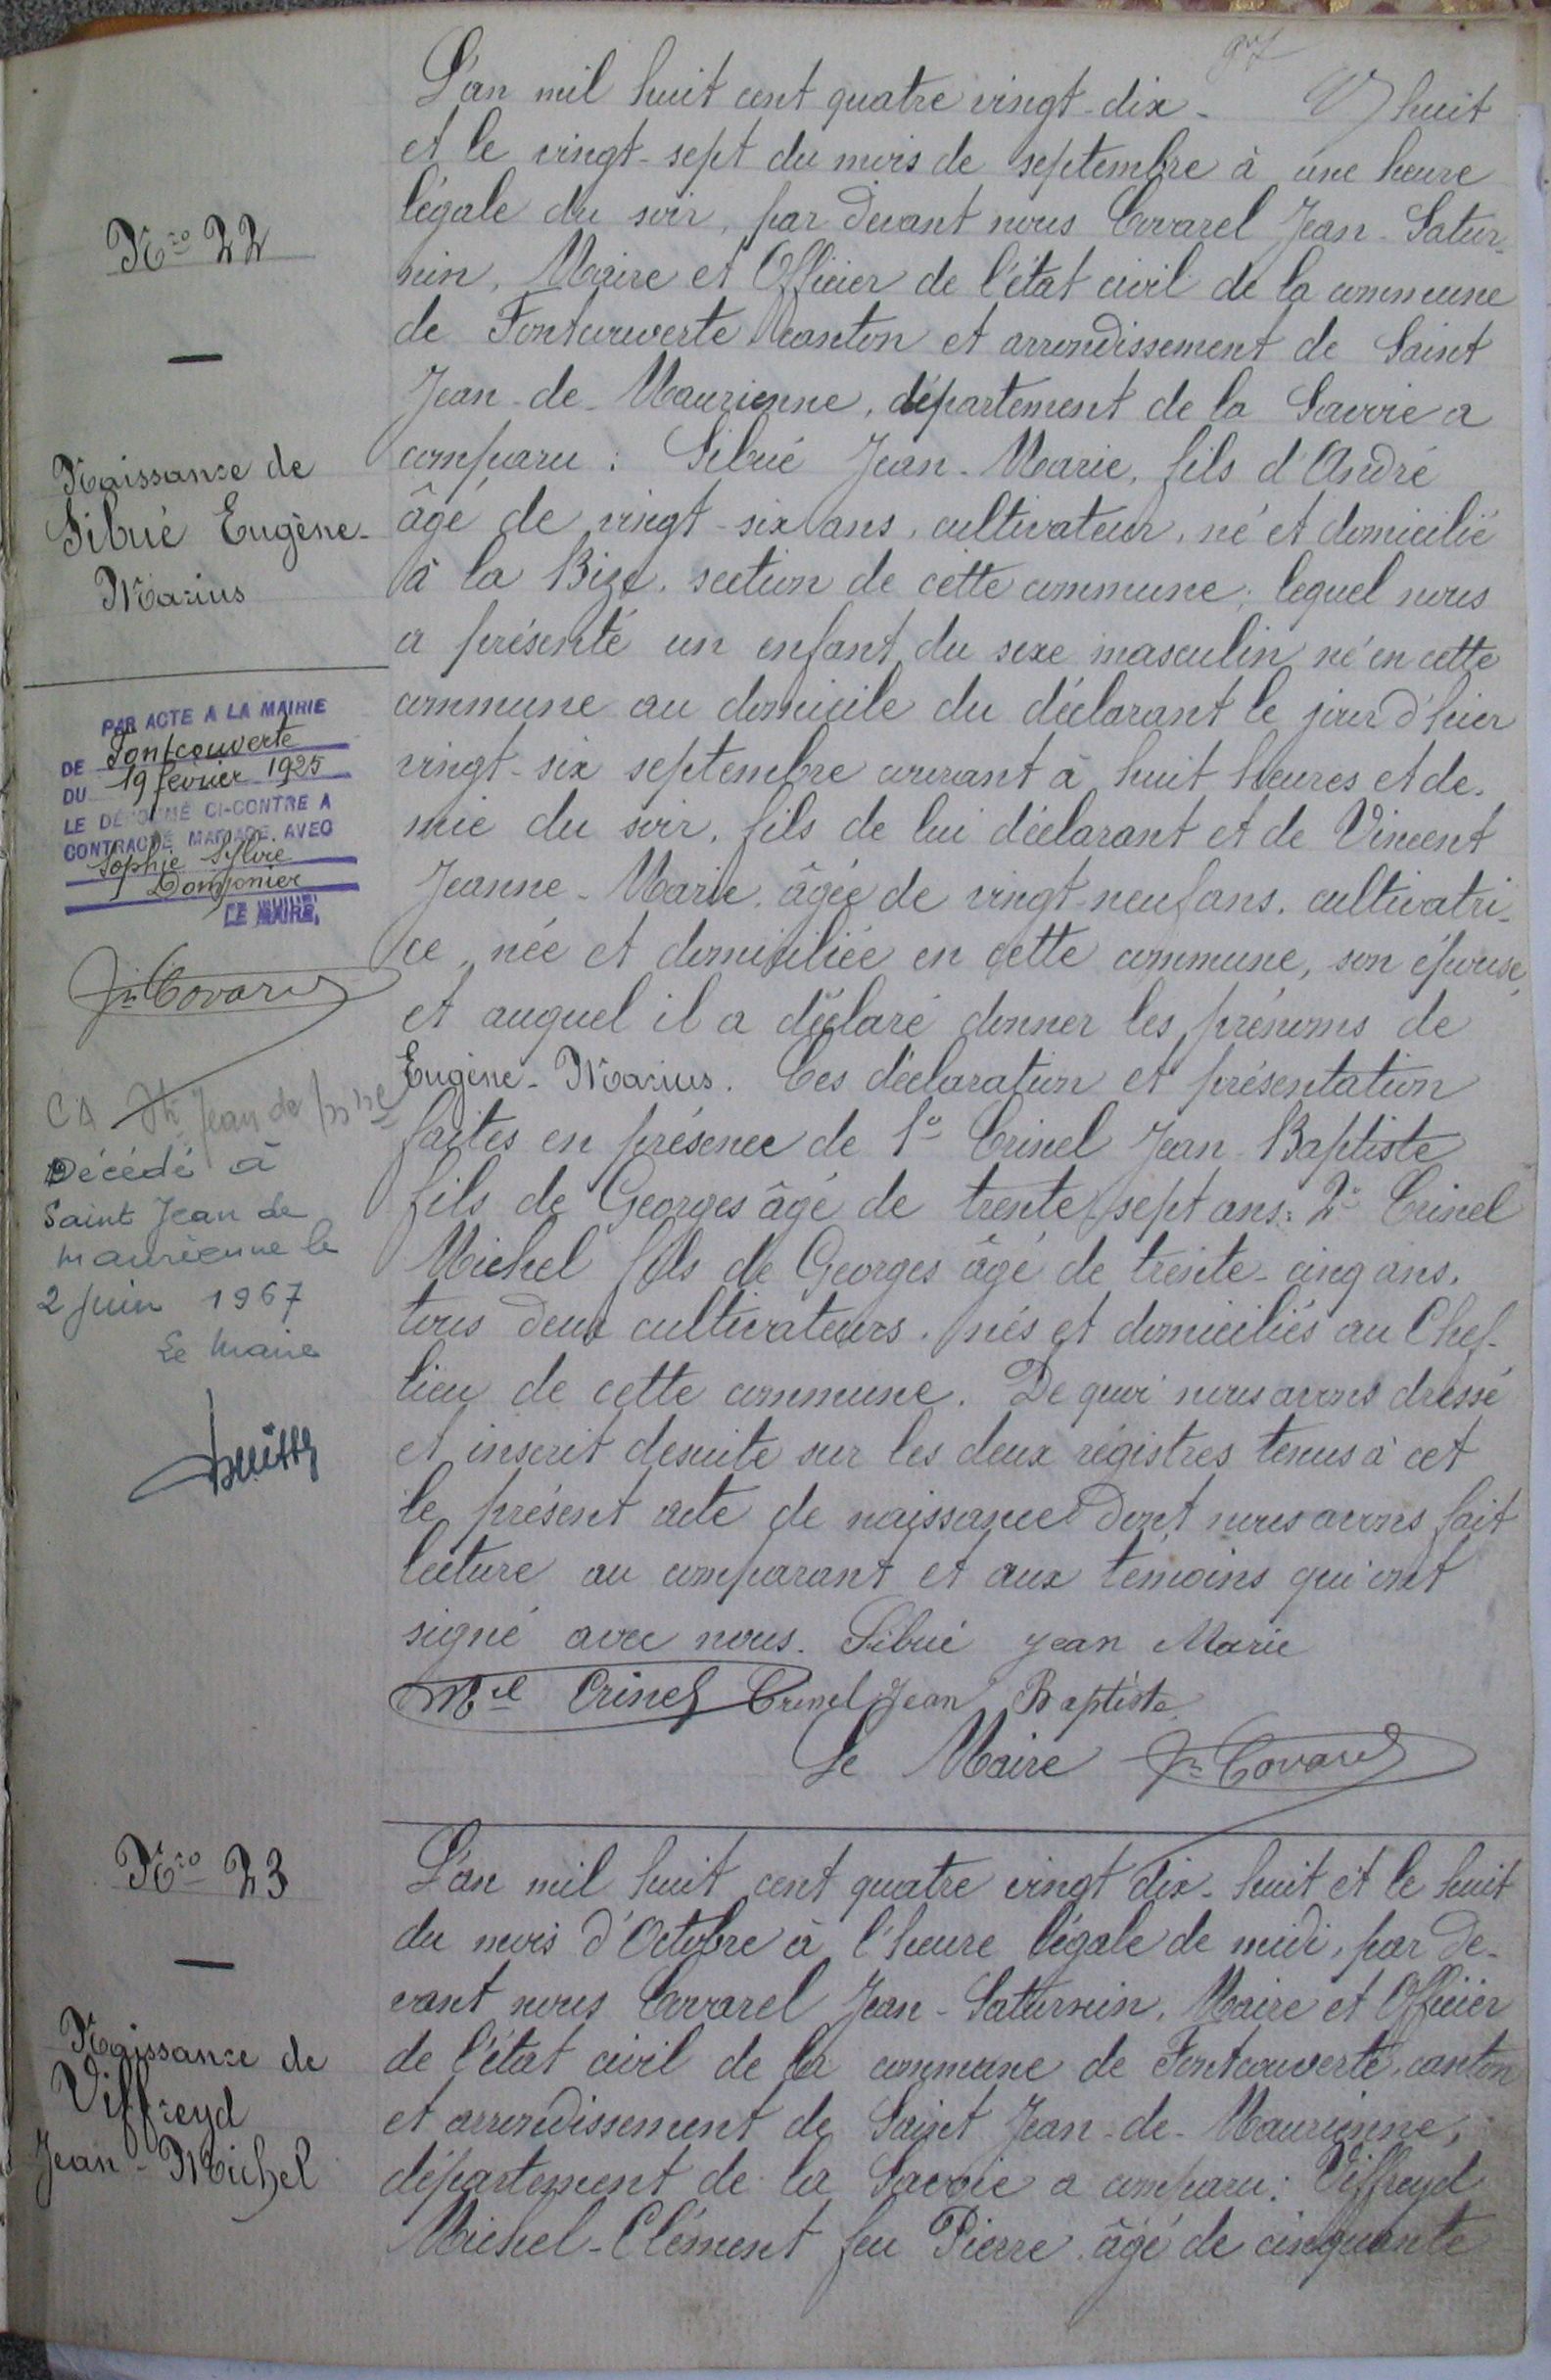 L'an mil huit cent quatre vingt-dix-huit
et le vingt-sept du mois de septembre à une heure
légale du soir, par devant nous Covarel Jean-Satur-
nin, Maire et Officier de l'état civil de la commune
de Fontcouverte canton et arrondissement de Saint
Jean-de-Maurienne, département de la Savoie a
comparu : Sibué Jean-Marie, fils d'André
âgé de vingt-six ans, cultivateur, né et domicilié
à la Bize, section de cette commune; lequel nous
a présenté un enfant du sexe masculin né en cette
commune au domicile du déclarant le jour d'hier
vingt-six septembre courant à huit heures et de-
mie du soir, fils de lui déclarant et de Vincent
Jeanne-Marie, âgée de vingt-neuf ans, cultivatri-
ce, née et domiciliée en cette commune, son épouse,
et auquel il a déclaré donner les prénoms de
Eugène-Marius. Ces déclaration et présentation
faites en présence de 1º Crinel Jean-Baptiste
fils de Georges âgé de trente-sept ans; 2º Crinel
Michel fils de Georges âgé de trente-cinq ans,
tous deux cultivateurs, nés et domiciliés au Chef-
lieu de cette commune. De quoi nous avons dressé
et inscrit desuite sur les deux régistres tenus à cet
le présent acte de naissance dont nous avons fait
lecture au comparant et aux témoins qui ont
signé avec nous. Sibué Jean Marie
Mel Crinel Crinel Jean Baptiste
Le Maire Jn Covarel
Nro 22
—
Naissance de
Sibué Eugène-
Marius
PAR ACTE A LA MAIRIE
DE Fontcouverte
DU 19 février 1925
LE DÉNOMMÉ CI-CONTRE A
CONTRACTÉ MARIAGE AVEC
Sophie Sylvie
Dompnier
LE MAIRE,
Jn Covarel
St Jean de Mne
Décédé à
Saint Jean de
Maurienne le
2 Juin 1967
Le Maire
Nro 23
—
Naissance de
Viffreyd
Jean-Michel
L'an mil huit cent quatre vingt dix-huit et le huit
du mois d'Octobre à l'heure légale de midi, par de-
vant nous Covarel Jean-Saturnin, Maire et Officier
de l'état civil de la commune de Fontcouverte, canton
et arrondissement de Saint Jean-de-Maurienne,
département de la Savoie a comparu : Viffreyd
Michel-Clément feu Pierre, âgé de cinquante